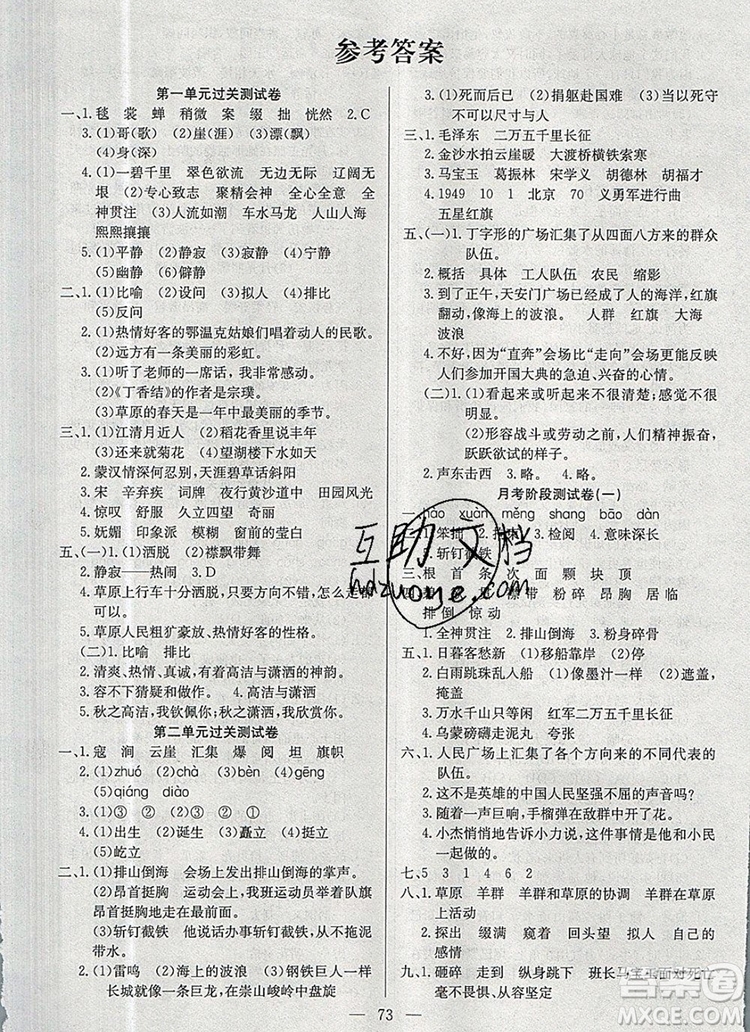 参考答案
第一单元过关测试卷
一、1.毯 裳 蝉 稍微 案 缀 拙 恍然 2.C
3.(1)哥(歌) (2)崖(涯) (3)漂(飘)
(4)身(深)
4.(1)一碧千里 翠色欲流 无边无际 辽阔无
垠 (2)专心致志 聚精会神 全心全意 全
神贯注 (3)人流如潮 车水马龙 人山人海
熙熙攘攘
5.(1)平静 (2)静寂 (3)寂静 (4)宁静
(5)幽静 (6)僻静
二、1.(1)比喻 (2)设问 (3)拟人 (4)排比
(5)反问
2.(1)热情好客的鄂温克姑娘们唱着动人的民歌。
(2)远方有一条美丽的彩虹。
3.(1)听了老师的一席话,我非常感动。
(2)《丁香结》的作者是宗璞。
(3)草原的春天是一年中最美丽的季节。
三、1.(1)江清月近人 (2)稻花香里说丰年
(3)千朵万朵压枝低 (4)望湖楼下水如天
2.蒙汉情深何忍别,天涯碧草话斜阳
3.宋 辛弃疾 词牌 夜行黄沙道中 田园风光
4.惊叹 舒服 久立四望 奇丽
5.妩媚 印象派 模糊 窗前的莹白
五、(一)1.(1)洒脱 (2)襟飘带舞
2.静寂——热闹 3.D
4.草原上行车十分洒脱,只要方向不错,怎么走都
可以。
5.草原人民粗犷豪放、热情好客的性格。
(二)1.比喻 排比
2.清爽、热情、真诚,有着高洁与潇洒的神韵。
3.容不下猜疑和做作。 高洁与潇洒
5.秋之高洁,我钦佩你;秋之潇洒,我赞赏你。
第二单元过关测试卷
一、1.寇 涧 云崖 汇集 爆 阅 坦 旗帜
2.(1)zhuó (2)chà (3)bèn (4)gēng
(5)qiáng diào
3.(1)① ② (2)② ① (3)③ ①
4.(1)出生 (2)诞生 (3)矗立 (4)挺立
(5)屹立
二、1.(1)排山倒海 会场上发出排山倒海的掌声。
(2)昂首挺胸 运动会上,我班运动员跟着队旗
昂首挺胸地走在最前面。
(3)斩钉截铁 他说话办事斩钉截铁,从不拖泥
带水。
2.(1)雷鸣 (2)潮水 (3)钢铁巨人一样
长城就像一条巨龙,在崇山峻岭中盘旋
3.(1)死而后已 (2)捐躯赴国难 (3)当以死守
不可以尺寸与人
三、1.毛泽东 二万五千里长征
2.金沙水拍云崖暖 大渡桥横铁索寒
3.马宝玉 葛振林 宋学义 胡德林 胡福才
4.1949 10 1 北京 70 义勇军进行曲
五星红旗
五、(一)1.丁字形的广场汇集了从四面八方来的群众
队伍。
2.概括 具体 工人队伍 农民 缩影
3.到了正午,天安门广场已经成了人的海洋,红旗
翻动,像海上的波浪。 人群 红旗 大海
波浪
4.不好,因为“直奔”会场比“走向”会场更能反映
人们参加开国大典的急迫、兴奋的心情。
(二)1.(1)看起来或听起来不很清楚;感觉不很
明显。
(2)形容战斗或劳动之前,人们情绪高涨、
跃跃欲试的样子。
2.声东击西 3.略。 4.略。
月考阶段测试卷(一)
一、hǎo xuàn měng shang bāo dàn
二、1.笨拙 2. 3.检阅 4.意味深长
5.斩钉截铁
三、根 首 条 次 面 颗 块 顶
飘带 粉碎 昂胸 居临
排倒 惊动
1.全神贯注 2.排山倒海 3.粉身碎骨
五、1.(1)日暮客愁新 (2)移船靠岸 (3)停
2.白雨跳珠乱入船 (1)像墨汁一样 (2)遮盖,
掩盖
3.万水千山只等闲 红军二万五千里长征
4.乌蒙磅礴走泥丸 夸张
六、1.人民广场上汇集了各个方向来的不同的代表
队伍。
2.这不是英雄的中国人民坚强不屈的声音吗?
3.随着一声巨响,手榴弹在敌群中开了花。
4.小杰悄悄地告诉小力说,这件事情是他和小民
一起做的。
七、5 3 1 4 6 2
八、1.草原 羊群 羊群和草原的协调 羊群在草原
上活动
2.探出 缀满 窥着 回头望 拟人 自己的
感情
九、砸碎 走到 纵身跳下 班长马宝玉面对死亡
毫不畏惧,从容坚定
互助文档
hdzuoye.com
73
答案圈
MXQE.COM